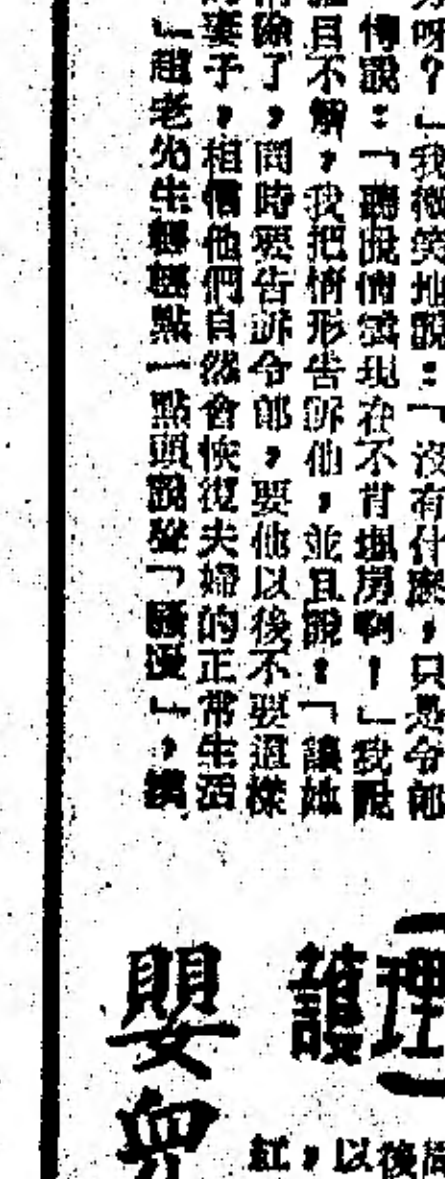 呀?」我微笑地說:「沒有什麽,只是令郎
說:「聽說情況現在不肯圓房啊!」我說
且不解,我把情形告訴他,並且說:「讓她
除了,同時要告訴令郎,要他以後不要這樣
妻子,相信他們自然會恢復夫婦的正常生活
」趙老先生輕輕點一點頭說聲「騷擾」,
理
護
嬰
紅,以後